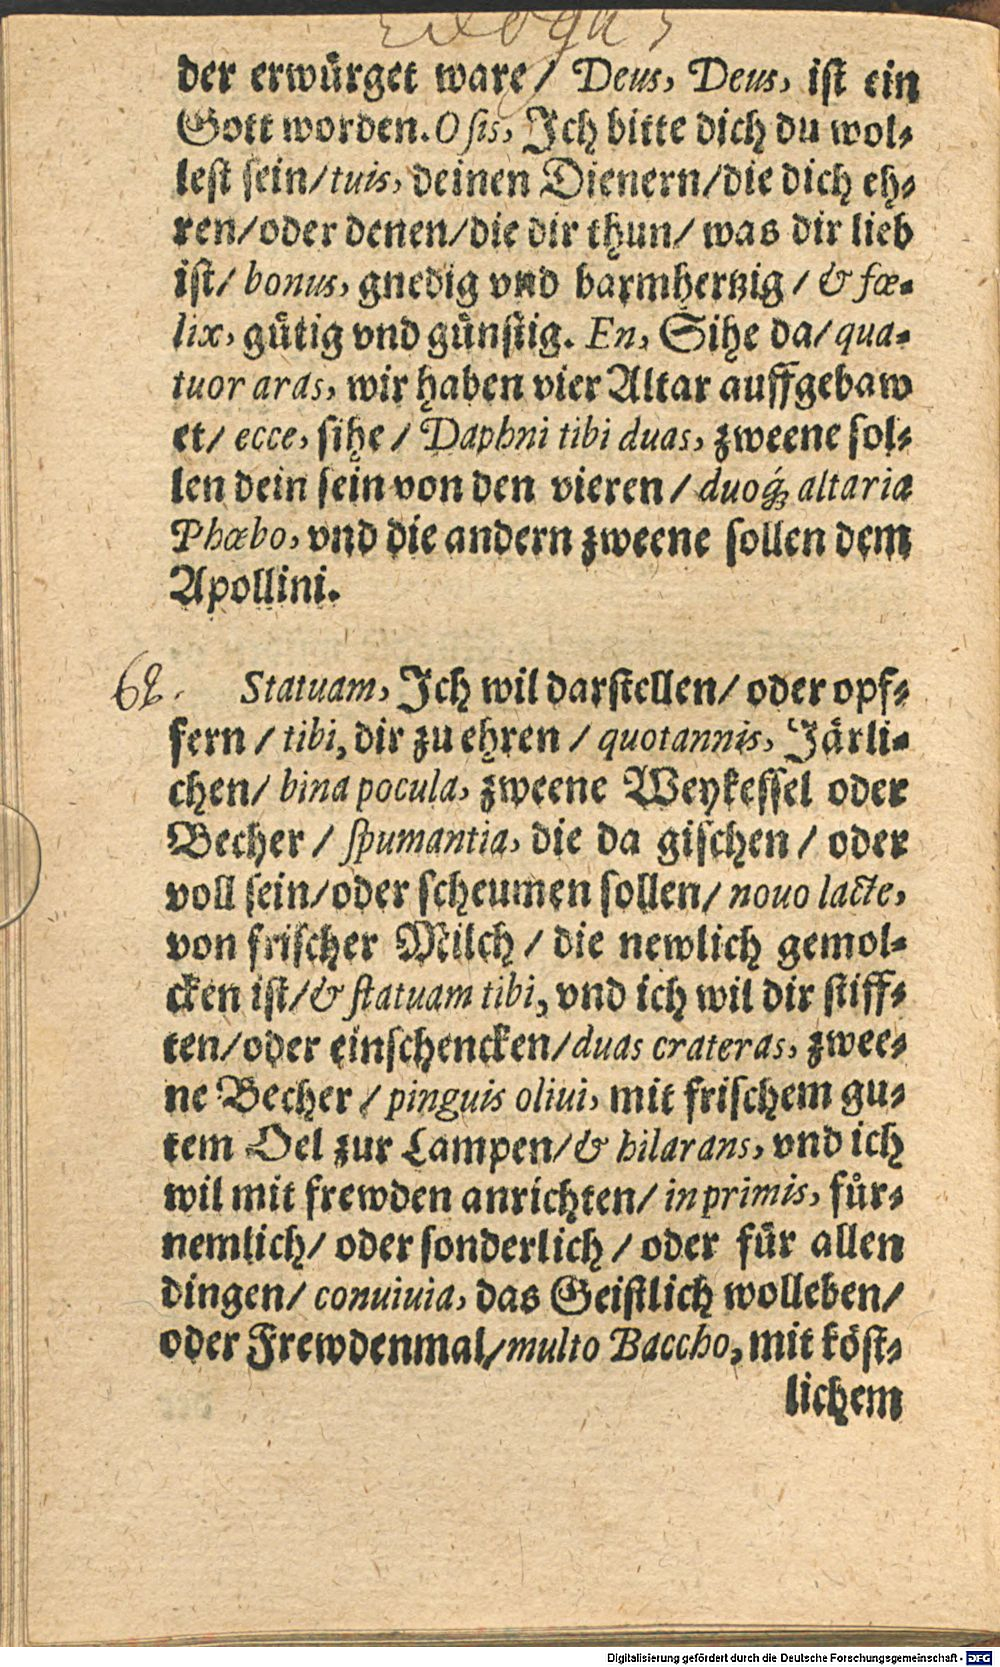 Ecloga 5
der erwürget ware / Deus, Deus, ist ein
Gott worden. O sis, Jch bitte dich du wol⸗
lest sein/ tuis, deinen Dienern/ die dich eh⸗
ren/ oder denen/ die dir thun/ was dir lieb
ist/ bonus, gnedig vnd barmhertzig / & fœ-
lix, gütig vnd günstig. En, Sihe da/ qua-
tuor aras, wir haben vier Altar auffgebaw
et/ ecce, sihe / Daphni tibi duas, zweene sol⸗
len dein sein von den vieren / duoq́; altaria
Phœbo, vnd die andern zweene sollen dem
Apollini.
68. Statuam, Jch wil darstellen/ oder opf⸗
fern / tibi, dir zu ehren / quotannis, Järli⸗
chen/ bina pocula, zweene Weykessel oder
Becher / spumantia, die da gischen / oder
voll sein/ oder scheumen sollen/ nouo lacte,
von frischer Milch / die newlich gemol⸗
cken ist/ & statuam tibi, vnd ich wil dir stiff⸗
ten/ oder einschencken/ duas crateras, zwee⸗
ne Becher / pinguis oliui, mit frischem gu⸗
tem Oel zur Lampen/ & hilarans, vnd ich
wil mit frewden anrichten/ inprimis, für⸗
nemlich/ oder sonderlich / oder für allen
dingen/ conuiuia, das Geistlich wolleben/
oder Frewdenmal/ multo Baccho, mit köst⸗
lichem
Digitalisierung gefördert durch die Deutsche Forschungsgemeinschaft - DFG